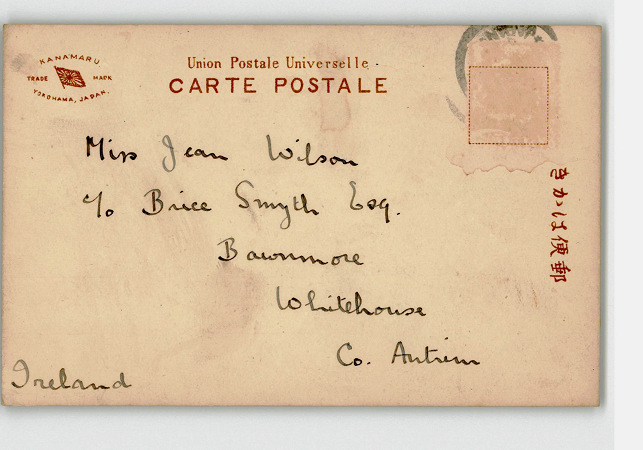 KANAMARU
TRADE MARK
YOKOHAMA, JAPAN.
Union Postale Universelle.
CARTE POSTALE
きかは便郵
Miss Jean Wilson
c/o Brice Smyth Esq.
Bawnmore
Whitehouse
Co. Antrim
Ireland